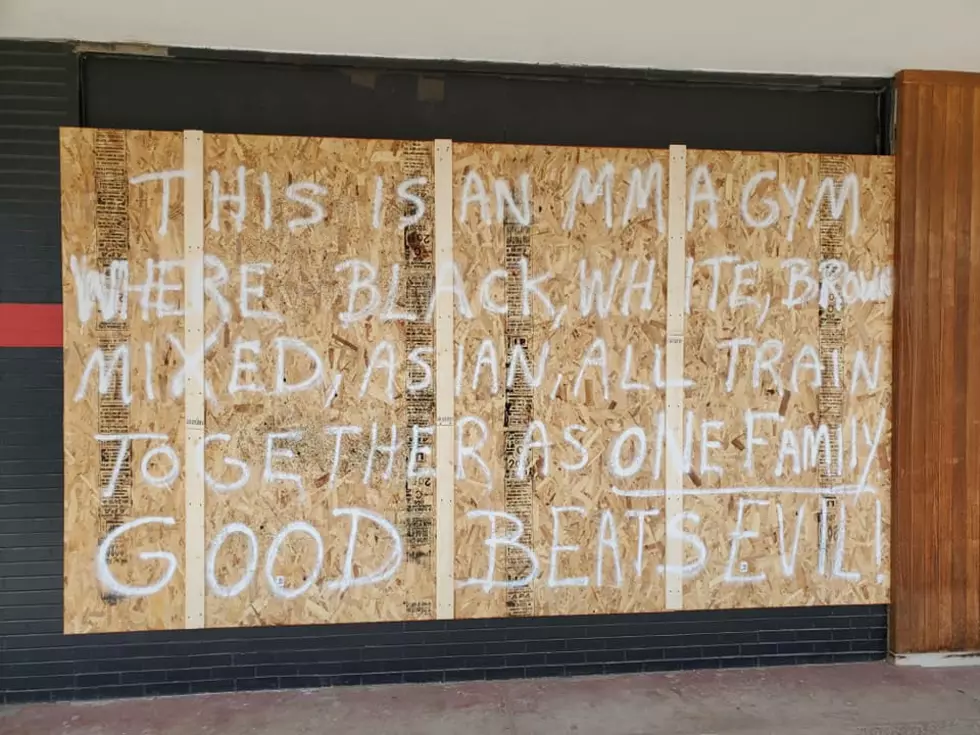 THIS IS AN MMA GYM
WHERE BLACK, WHITE, BROWN
MIXED, ASIAN, ALL TRAIN
TOGETHER AS ONE FAMILY
GOOD BEATS EVIL!